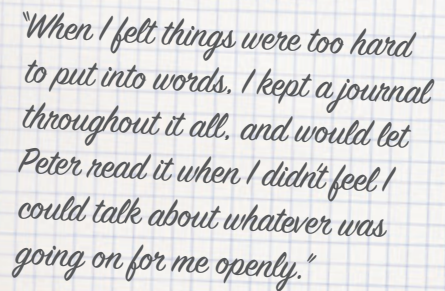 "When I felt things were too hard
to put into words, I kept a journal
throughout it all, and would let
Peter read it when I didn't feel I
could talk about whatever was
going on for me openly."